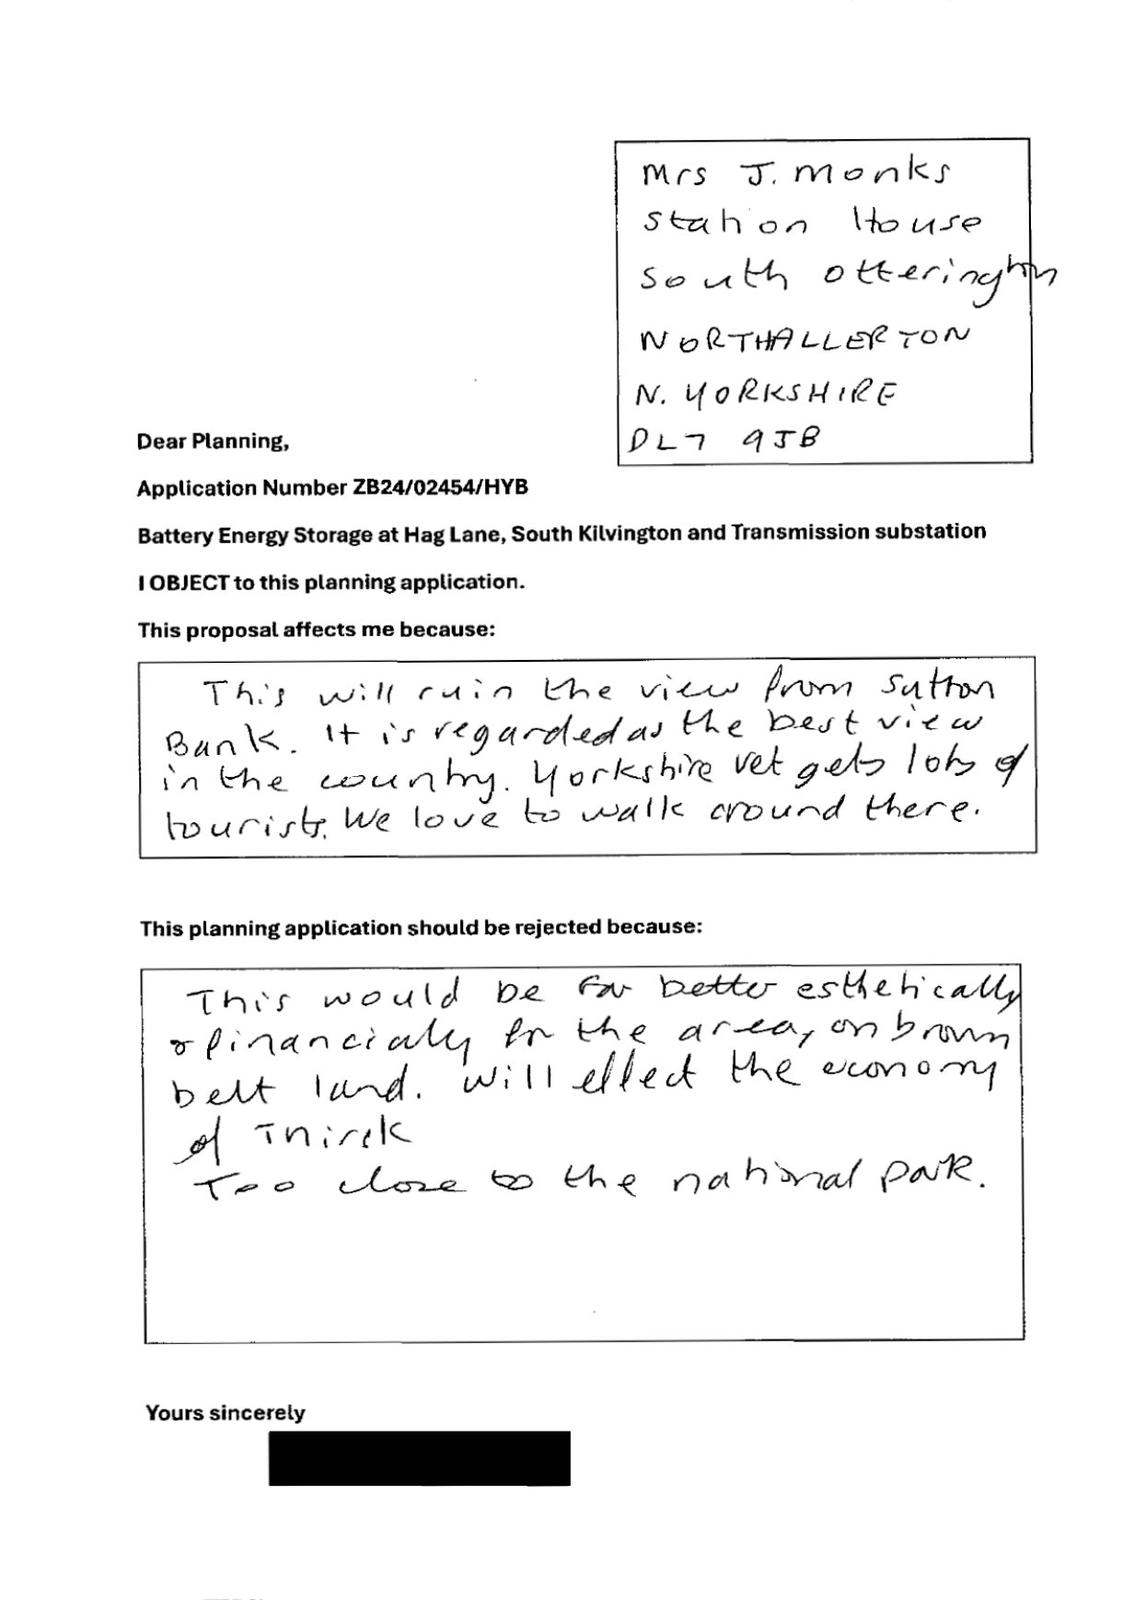 Mrs J. Monks
Station House
South Otterington
NORTHALLERTON
N. YORKSHIRE
DL7 9JB
Dear Planning,
Application Number ZB24/02454/HYB
Battery Energy Storage at Hag Lane, South Kilvington and Transmission substation
I OBJECT to this planning application.
This proposal affects me because:
This will ruin the view from Sutton
Bank. It is regarded as the best view
in the country. Yorkshire vet gets lots of
tourists. We love to walk around there.
This planning application should be rejected because:
This would be far better esthetically
& financially for the area, on brown
belt land. Will effect the economy
of Thirsk
Too close to the national park.
Yours sincerely